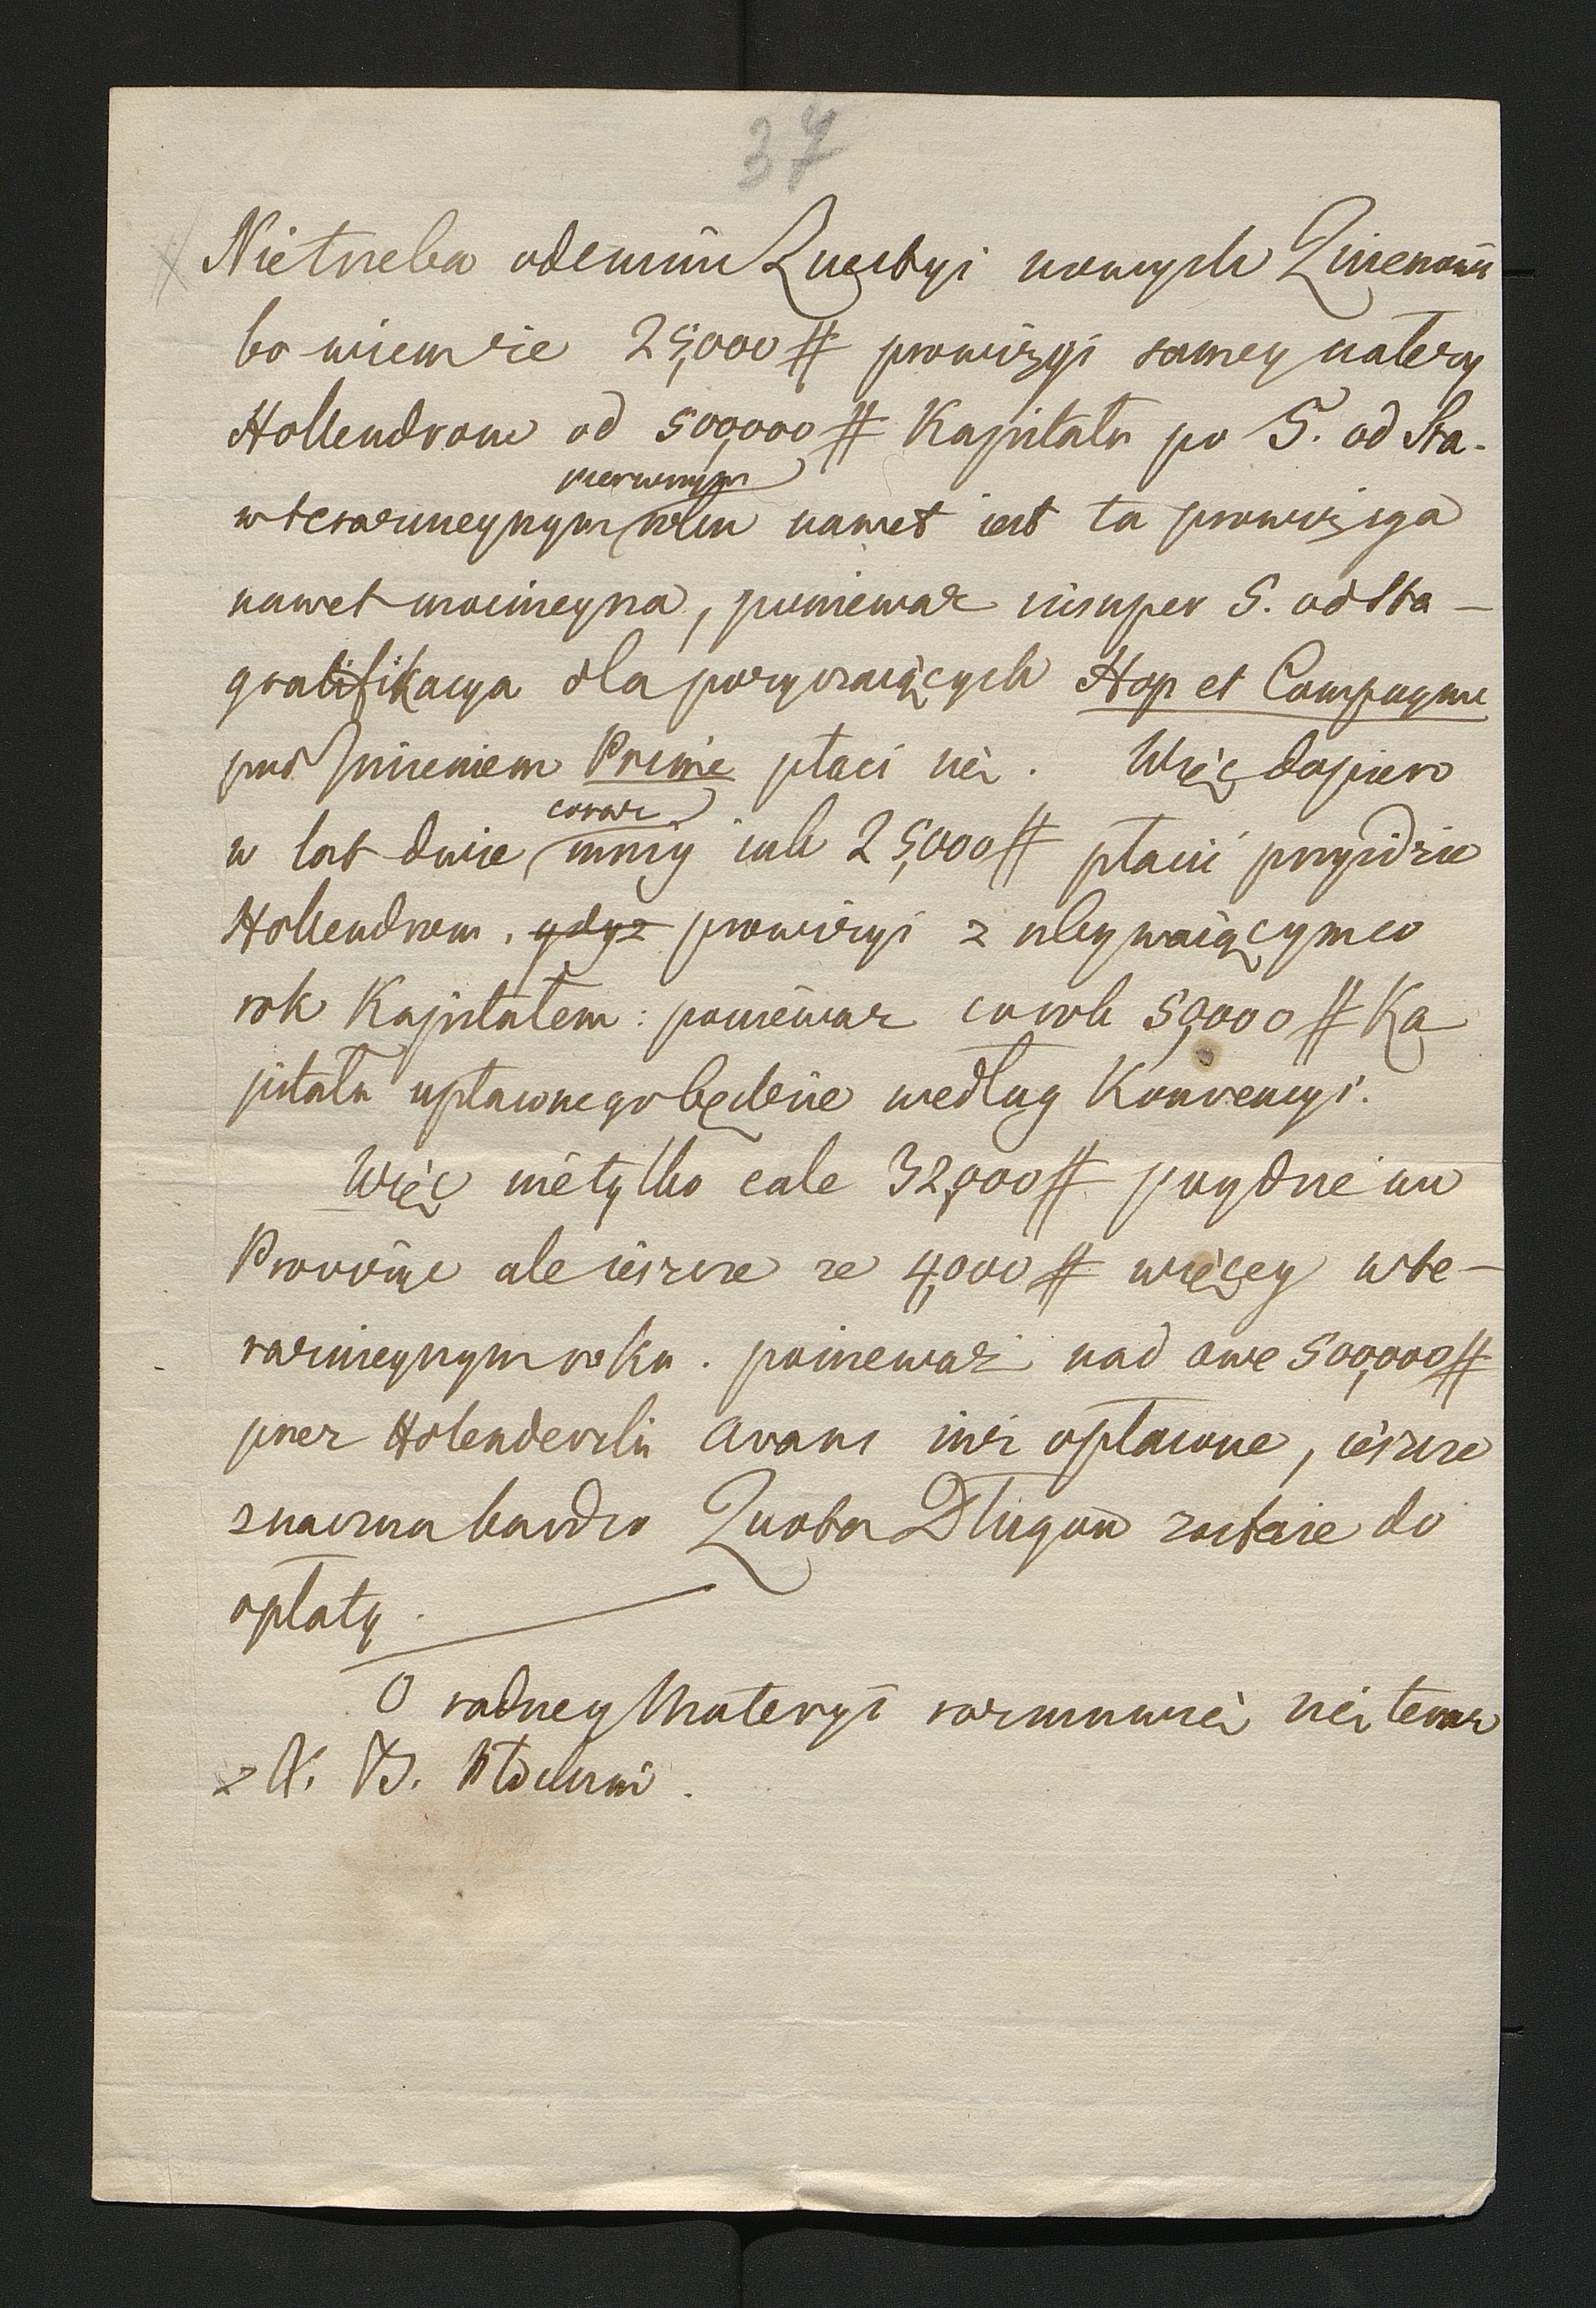 37
Nie trzeba odemnie Questyi nowych Zinenom
bo wiem że 25,000 # prowizyi samey należy
Hollendrom od 500,000 # Kapitału po 5. od sta.
w teraznieyszym pierwszym roku nawet iest ta prowizyia
nawet mocnieysza, ponieważ insuper 5. od sta –
gratifikacya dla pozyczaiących Hop et Compagnie
pod Imieniem Prime płaci się. Więc dopiero
w lat dwie coraz mniey iak 25,000 # płacić przyidzie
Hollendrom, gdyż prowizyi z ubywaiącym co
rok Kapitałem: ponieważ co rok 50,000 # Ka
pitału upłaconego będzie według Konvencyi.
Więc nie tylko cale 32,000 # póydzie na
Prowizye ale ieszcze ze 4,000 # więcey w te–
raznieyszym roku. ponieważ nad owe 500,000 #
przez Holenderski Avans iuż opłacone, ieszcze
znaczna bardzo Quota Długow zostaie do
opłaty.
O żadney Materyi rozmawiać nie teraz
z X. B.